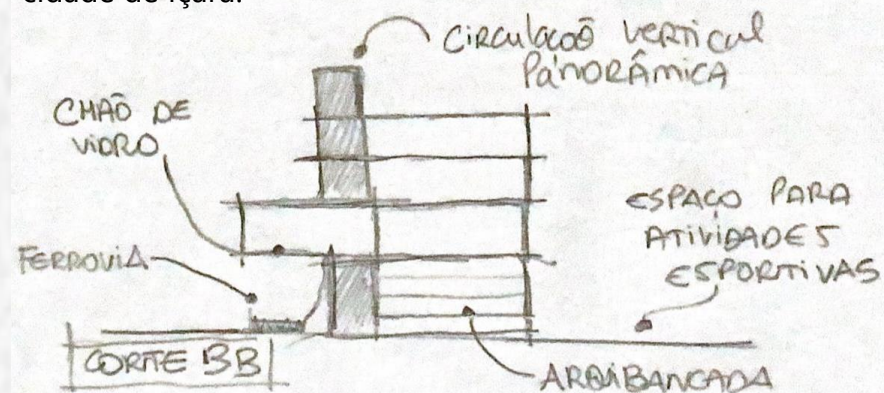 cidade de Içara.
CIRCULAÇÃO VERTICAL
PANORÂMICA
CHÃO DE
VIDRO
ESPAÇO PARA
ATIVIDADES
ESPORTIVAS
FERROVIA
CORTE BB
ARQUIBANCADA